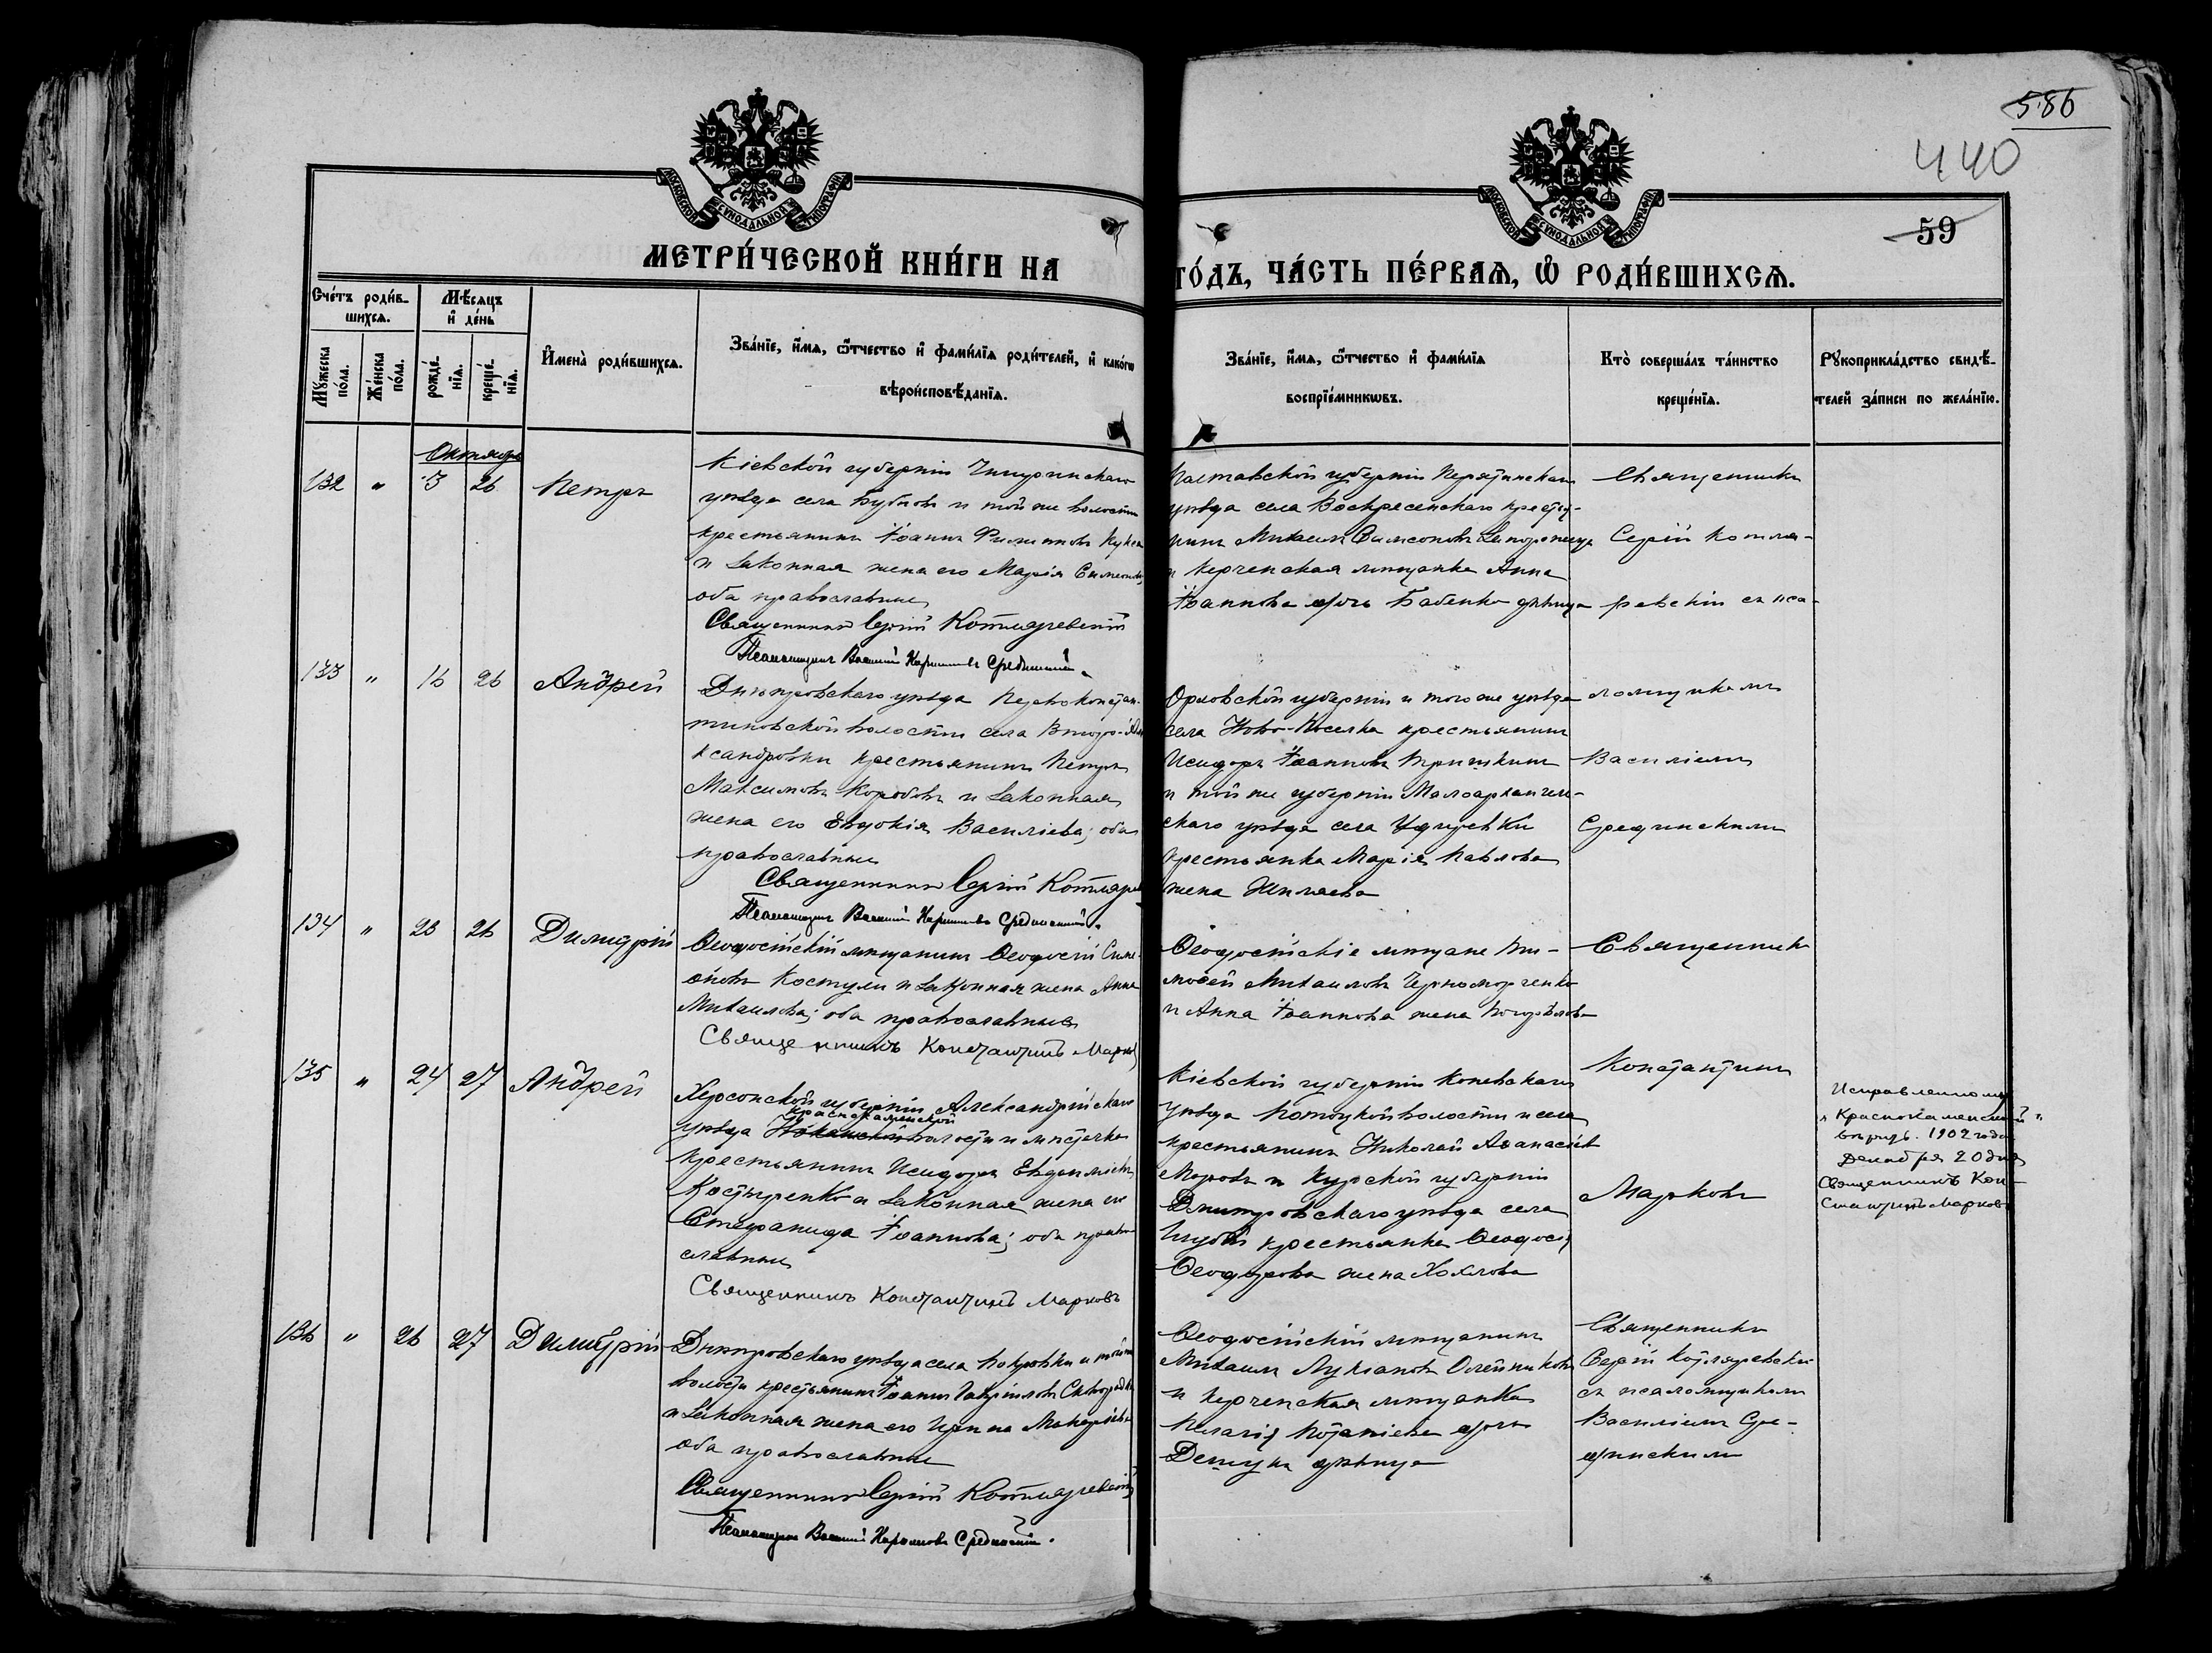 586
440
59
МОСКОВСКОЙ СѴНОДАЛЬНОЙ ТИПОГРАФІИ
МОСКОВСКОЙ СѴНОДАЛЬНОЙ ТИПОГРАФІИ
МЕТРИ́ЧЕСКОЙ КНИ́ГИ НА
ГО́ДЪ, ЧА́СТЬ ПЕ́РВАѦ, Ѽ РОДИ́ВШИХСѦ.
Сче́тъ роди́в-
шихсѧ.
Мѣ́сѧцъ
и҆ де́нь
Мꙋ́жеска
по́ла.
Же́нска
по́ла.
рожде́-
нїѧ.
креще́-
нїѧ.
И҆мена̀ роди́вшихсѧ.
Зва́нїе, и҆́мѧ, ѻ҆́тчество и҆ фами́лїѧ роди́телей, и҆ како́гѡ
вѣроисповѣ́данїѧ.
Зва́нїе, и҆́мѧ, ѻ҆́тчество и҆ фами́лїѧ
воспрїе́мникѡвъ.
Кто̀ соверша́лъ та́инство
креще́нїѧ.
Рꙋкоприкла́дство свидѣ́-
телей за́писи по жела́нїю.
Октябрь
132 " 3 26 Петръ
Кіевской губерніи Чигиринскаго
уѣзда села Бубновъ и той же волости
крестьянинъ Іоаннъ Филипповъ
и законная жена его Марія Симеонова,
оба православные
Священникъ Сергій Котляревскій
Псаломщикъ Василій Кирилловъ Срединскій.
Полтавской губерніи Пирятинскаго
уѣзда села Воскресенскаго крестья-
нинъ Михаилъ Симеоновъ
и Керченская мѣщанка Анна
Іоаннова дочь Бабенко дѣвица
Священникъ
Сергій Котля-
ревскій съ пса-
133 " 16 26 Андрей
Днѣпровскаго уѣзда Петроконстан-
тиновской волости села Второ-Але
ксандровки крестьянинъ Петръ
Максимовъ Коробовъ и законная
жена его Евдокія Васильева; оба
православные
Священникъ Сергій Котляре
Псаломщикъ Василій Кирилловъ Срединскій.
Орловской губерніи и того же уѣзда
села Ново-Поселка крестьянинъ
Исидоръ Іоанновъ Тришкинъ
и той же губерніи Малоархангель-
скаго уѣзда села
крестьянка Марія Павлова
жена
ломщикомъ
Василіемъ
Срединскимъ
134 " 23 26 Димитрій
Ѳеодосійскій мѣщанинъ Ѳеодосій Симе-
оновъ Костули и законная жена Анна
Михаилова; оба православные
Священникъ Константинъ Марков
Ѳеодосійскіе мѣщане Ти-
моѳей Михаиловъ Черноморченко
и Анна Іоаннова жена
Священникъ
135 " 24 27 Андрей
Херсонской губерніи Александрійскаго
Краснокаменской
уѣзда волости и мѣстечка
крестьянинъ Исидоръ Евдокимовъ
Костыренко и законная жена его
Стефанида Іоаннова; оба право-
славные
Священникъ Константинъ Марковъ
Кіевской губерніи Каневскаго
уѣзда Потоцкой волости и села
крестьянинъ Николай Аѳанасіевъ
Моровъ и Курской губерніи
Дмитровскаго уѣзда села
крестьянка Ѳеодосія
Ѳеодорова жена Хохлова
Константинъ
Марковъ
Исправленному
„Краснокаменской"
вѣрить. 1902 года
Декабря 20 дня
Священникъ Кон-
стантинъ Марковъ
136 " 26 27 Димитрій
Днѣпровскаго уѣзда села Покровки и той же
волости крестьянинъ Іоаннъ Гавріиловъ
и законная жена его Ирина Макаріева
оба православные
Священникъ Сергій Котляревскій
Псаломщикъ Василій Кирилловъ Срединскій.
Ѳеодосійскій мѣщанинъ
Михаилъ Лукіановъ Олейниковъ
и Керченская мѣщанка
Пелагія Потапіева дочь
дѣвица
Священникъ
Сергій Котляревскій
съ псаломщикомъ
Василіемъ Сре-
динскимъ